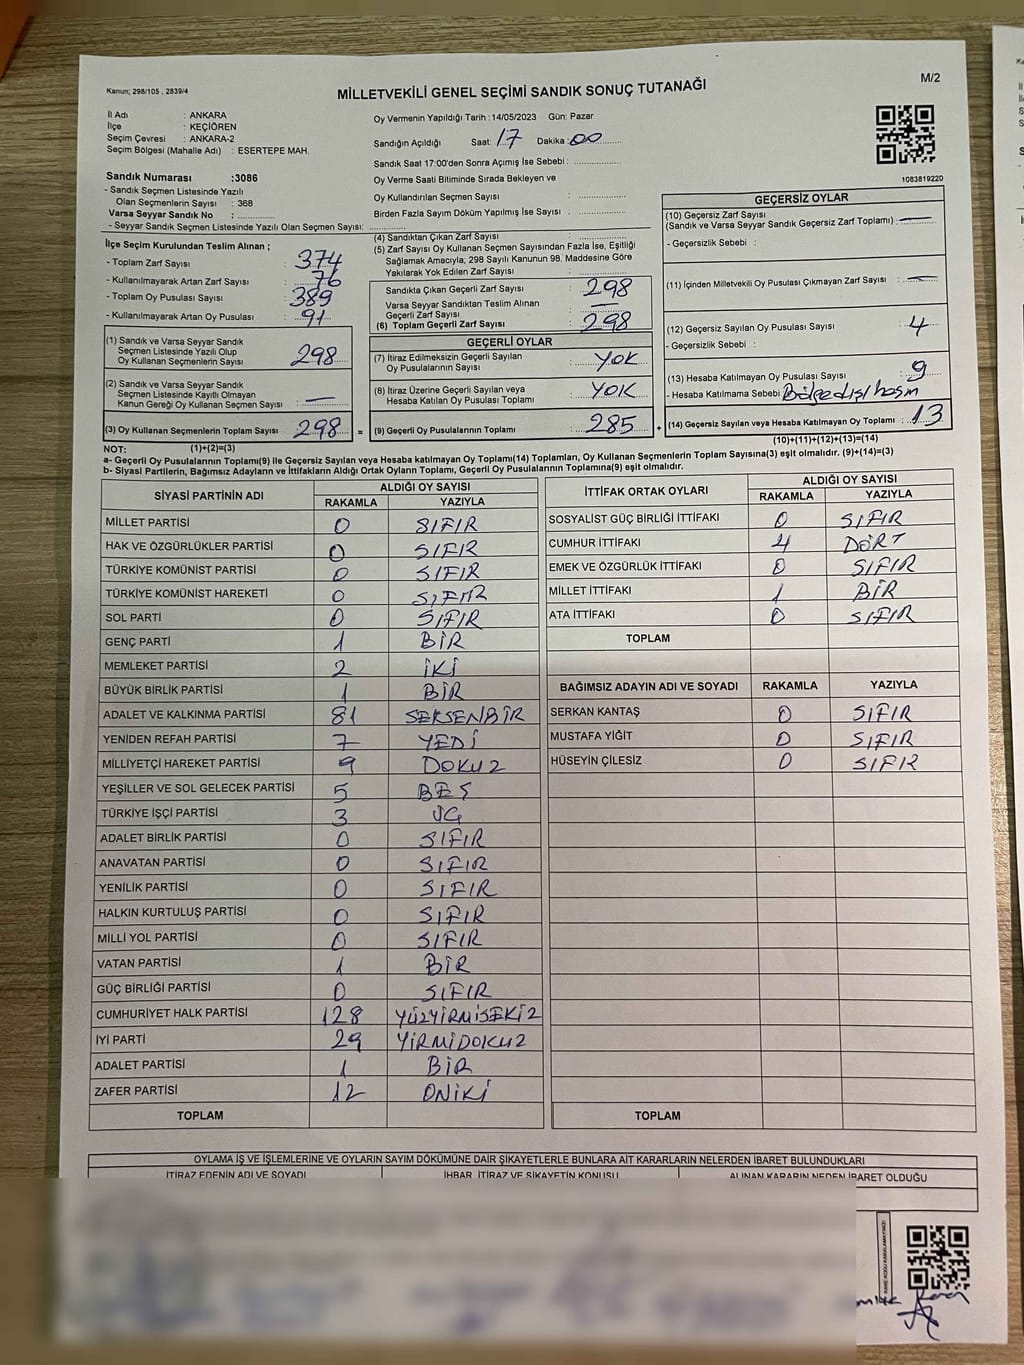 Kanun; 298/105 , 2839/4
M/2
MİLLETVEKİLİ GENEL SEÇİMİ SANDIK SONUÇ TUTANAĞI
İl Adı : ANKARA
İlçe : KEÇİÖREN
Seçim Çevresi : ANKARA-2
Seçim Bölgesi (Mahalle Adı) : ESERTEPE MAH.
Sandık Numarası :3086
- Sandık Seçmen Listesinde Yazılı
Olan Seçmenlerin Sayısı : 368
Varsa Seyyar Sandık No :
- Seyyar Sandık Seçmen Listesinde Yazılı Olan Seçmen Sayısı:
Oy Vermenin Yapıldığı Tarih :14/05/2023 Gün: Pazar
Sandığın Açıldığı Saat: 17 Dakika: 00
Sandık Saat 17:00'den Sonra Açımış İse Sebebi :
Oy Verme Saati Bitiminde Sırada Bekleyen ve
Oy Kullandırılan Seçmen Sayısı :
Birden Fazla Sayım Döküm Yapılmış İse Sayısı :
1083819220
İlçe Seçim Kurulundan Teslim Alınan ;
- Toplam Zarf Sayısı : 374
- Kullanılmayarak Artan Zarf Sayısı : 76
- Toplam Oy Pusulası Sayısı : 389
- Kullanılmayarak Artan Oy Pusulası : 91
(1) Sandık ve Varsa Seyyar Sandık
Seçmen Listesinde Yazılı Olup
Oy Kullanan Seçmenlerin Sayısı : 298
(2) Sandık ve Varsa Seyyar Sandık
Seçmen Listesinde Kayıtlı Olmayan
Kanun Gereği Oy Kullanan Seçmen Sayısı : —
(3) Oy Kullanan Seçmenlerin Toplam Sayısı : 298 =
(4) Sandıktan Çıkan Zarf Sayısı :
(5) Zarf Sayısı Oy Kullanan Seçmen Sayısından Fazla İse, Eşitliği
Sağlamak Amacıyla; 298 Sayılı Kanunun 98. Maddesine Göre
Yakılarak Yok Edilen Zarf Sayısı :
Sandıkta Çıkan Geçerli Zarf Sayısı : 298
Varsa Seyyar Sandıktan Teslim Alınan
Geçerli Zarf Sayısı : —
(6) Toplam Geçerli Zarf Sayısı : 298
GEÇERLİ OYLAR
(7) İtiraz Edilmeksizin Geçerli Sayılan
Oy Pusulalarının Sayısı : YOK
(8) İtiraz Üzerine Geçerli Sayılan veya
Hesaba Katılan Oy Pusulası Toplamı : YOK
(9) Geçerli Oy Pusulalarının Toplamı : 285 +
GEÇERSİZ OYLAR
(10) Geçersiz Zarf Sayısı
(Sandık ve Varsa Seyyar Sandık Geçersiz Zarf Toplamı) : —
- Geçersizlik Sebebi :
(11) İçinden Milletvekili Oy Pusulası Çıkmayan Zarf Sayısı : —
(12) Geçersiz Sayılan Oy Pusulası Sayısı : 4
- Geçersizlik Sebebi :
(13) Hesaba Katılmayan Oy Pusulası Sayısı : 9
- Hesaba Katılmama Sebebi : Bölgedışı/hasım
(14) Geçersiz Sayılan veya Hesaba Katılmayan Oy Toplamı : 13
NOT: (1)+(2)=(3)
(10)+(11)+(12)+(13)=(14)
a- Geçerli Oy Pusulalarının Toplamı(9) ile Geçersiz Sayılan veya Hesaba katılmayan Oy Toplamı(14) Toplamları, Oy Kullanan Seçmenlerin Toplam Sayısına(3) eşit olmalıdır. (9)+(14)=(3)
b- Siyasi Partilerin, Bağımsız Adayların ve İttifakların Aldığı Ortak Oyların Toplamı, Geçerli Oy Pusulalarının Toplamına(9) eşit olmalıdır.
SİYASİ PARTİNİN ADI ALDIĞI OY SAYISI
RAKAMLA YAZIYLA
MİLLET PARTİSİ 0 SIFIR
HAK VE ÖZGÜRLÜKLER PARTİSİ 0 SIFIR
TÜRKİYE KOMÜNİST PARTİSİ 0 SIFIR
TÜRKİYE KOMÜNİST HAREKETİ 0 SIFIR
SOL PARTİ 0 SIFIR
GENÇ PARTİ 1 BİR
MEMLEKET PARTİSİ 2 İKİ
BÜYÜK BİRLİK PARTİSİ 1 BİR
ADALET VE KALKINMA PARTİSİ 81 SEKSENBİR
YENİDEN REFAH PARTİSİ 7 YEDİ
MİLLİYETÇİ HAREKET PARTİSİ 9 DOKUZ
YEŞİLLER VE SOL GELECEK PARTİSİ 5 BEŞ
TÜRKİYE İŞÇİ PARTİSİ 3 ÜÇ
ADALET BİRLİK PARTİSİ 0 SIFIR
ANAVATAN PARTİSİ 0 SIFIR
YENİLİK PARTİSİ 0 SIFIR
HALKIN KURTULUŞ PARTİSİ 0 SIFIR
MİLLİ YOL PARTİSİ 0 SIFIR
VATAN PARTİSİ 1 BİR
GÜÇ BİRLİĞİ PARTİSİ 0 SIFIR
CUMHURİYET HALK PARTİSİ 128 YÜZYİRMİSEKİZ
İYİ PARTİ 29 YİRMİDOKUZ
ADALET PARTİSİ 1 BİR
ZAFER PARTİSİ 12 ONİKİ
TOPLAM
İTTİFAK ORTAK OYLARI ALDIĞI OY SAYISI
RAKAMLA YAZIYLA
SOSYALİST GÜÇ BİRLİĞİ İTTİFAKI 0 SIFIR
CUMHUR İTTİFAKI 4 DÖRT
EMEK VE ÖZGÜRLÜK İTTİFAKI 0 SIFIR
MİLLET İTTİFAKI 1 BİR
ATA İTTİFAKI 0 SIFIR
TOPLAM
BAĞIMSIZ ADAYIN ADI VE SOYADI RAKAMLA YAZIYLA
SERKAN KANTAŞ 0 SIFIR
MUSTAFA YİĞİT 0 SIFIR
HÜSEYİN ÇİLESİZ 0 SIFIR
TOPLAM
OYLAMA İŞ VE İŞLEMLERİNE VE OYLARIN SAYIM DÖKÜMÜNE DAİR ŞİKAYETLERLE BUNLARA AİT KARARLARIN NELERDEN İBARET BULUNDUKLARI
İTİRAZ EDENİN ADI VE SOYADI İHBAR, İTİRAZ VE ŞİKAYETİN KONUSU ALINAN KARARIN NEDEN İBARET OLDUĞU